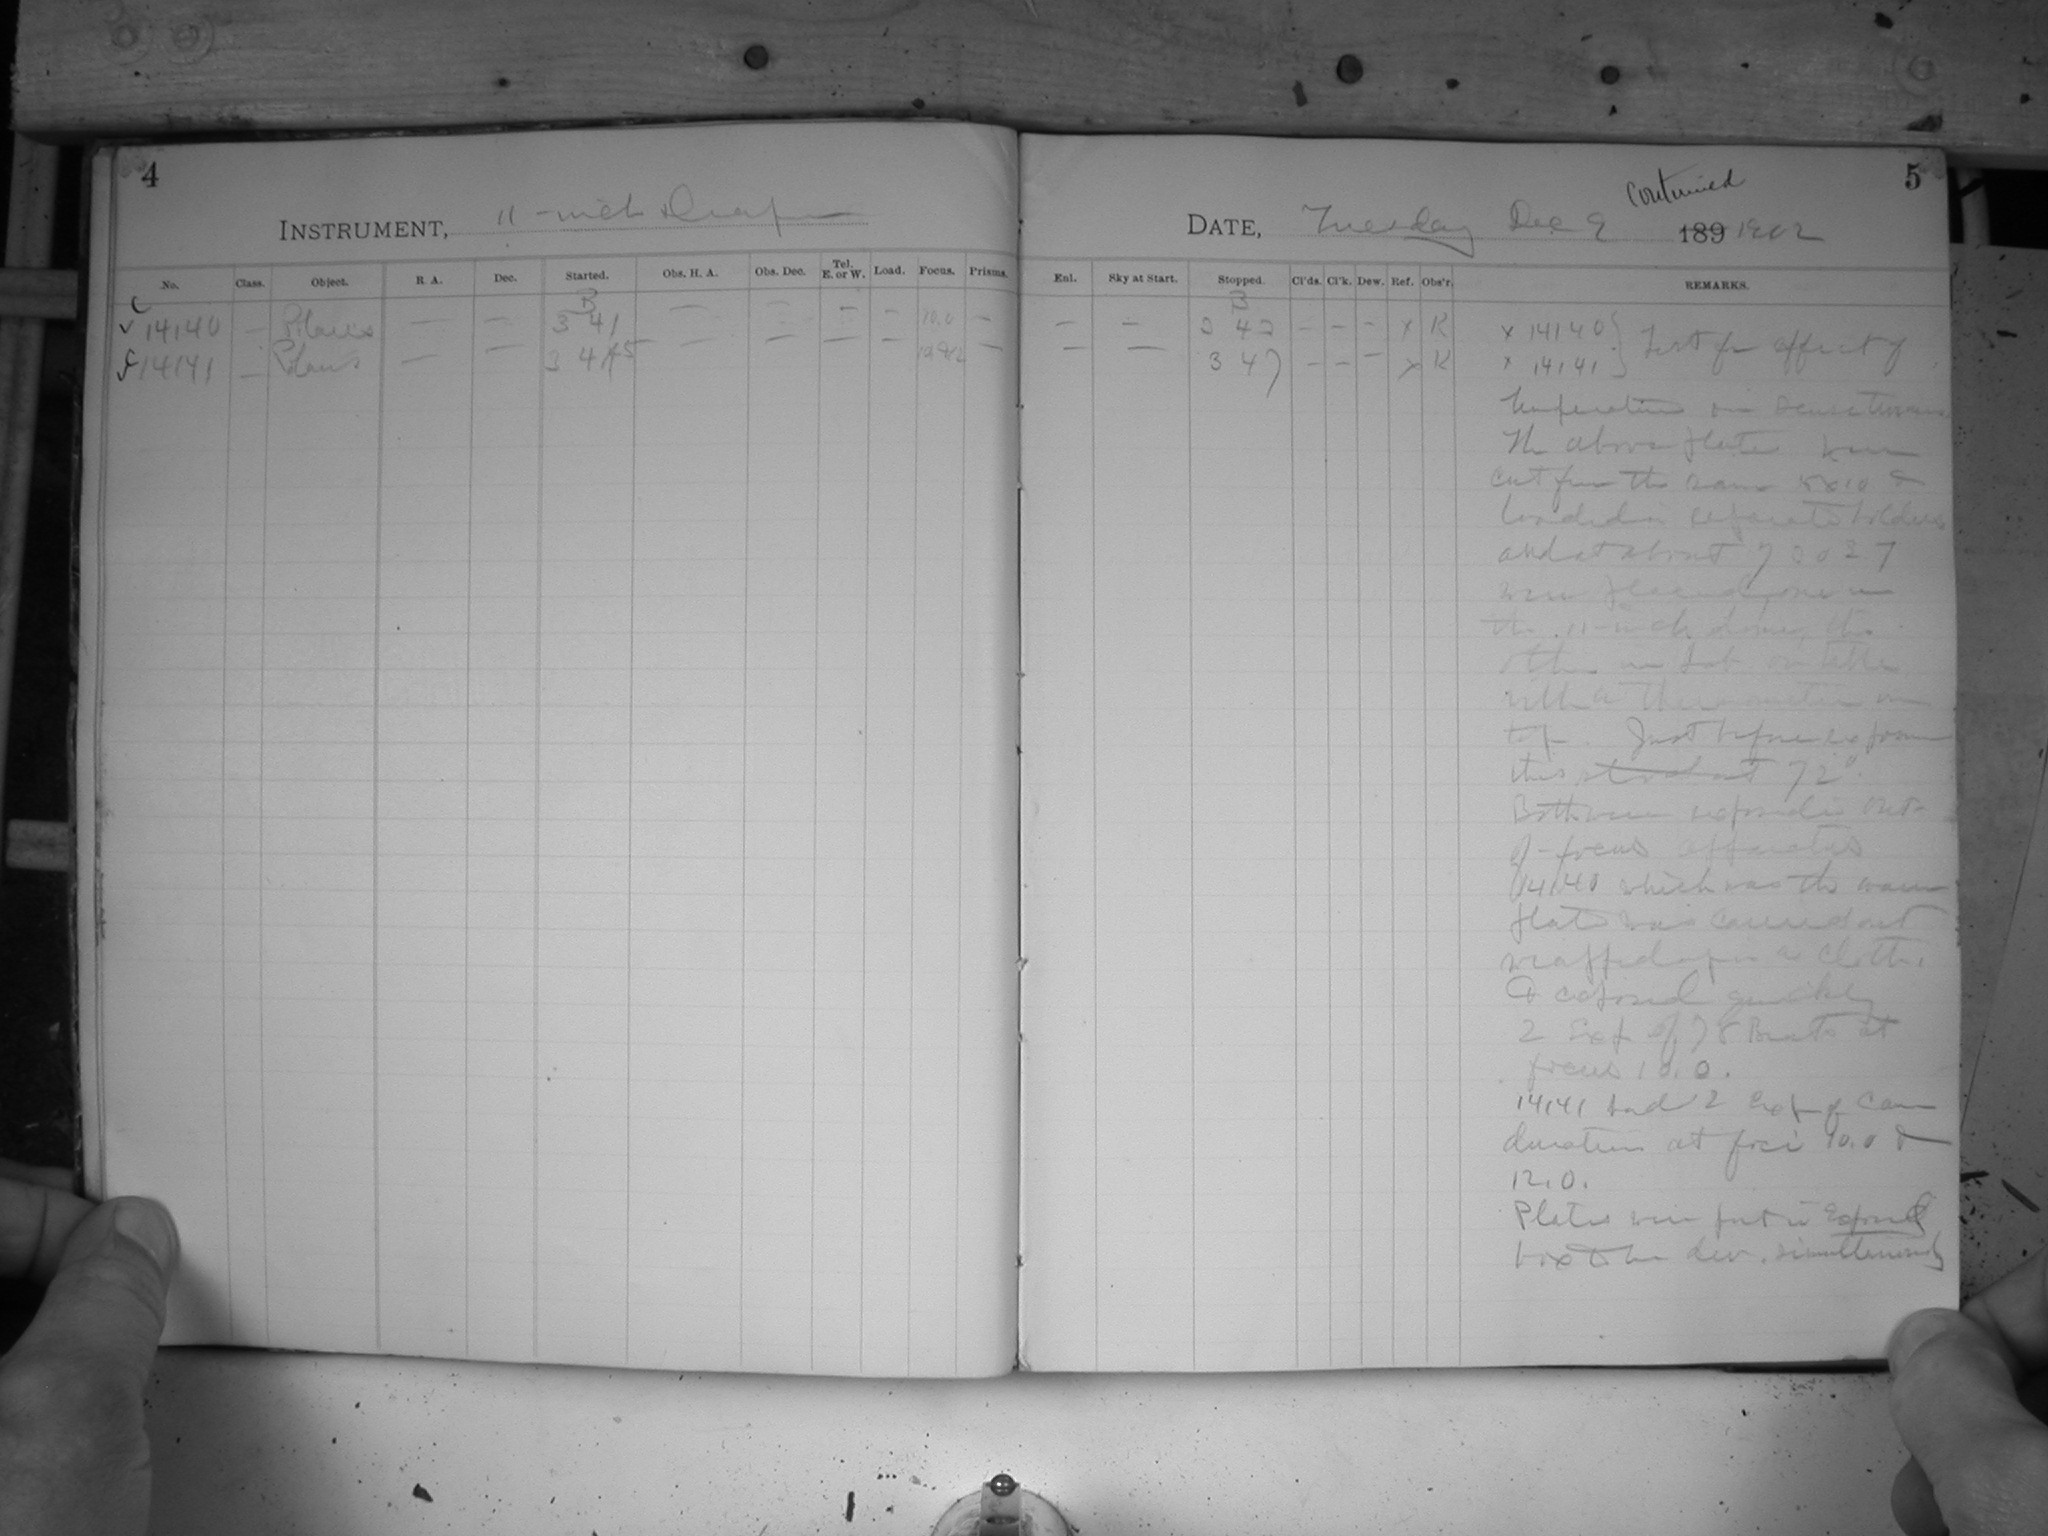 4
INSTRUMENT, 11-inch Draper
No. Class. Object. R. A. Dec. Started. Obs. H. A. Obs. Dec. Tel. E. or W. Load. Focus. Prisms.
C B
v 14140 — Polaris — — 3 41 — — — — 10.0 —
14141 — Polaris — — 3 45 — — — — —
5
continued
DATE, Tuesday Dec 9 189 1902
Enl. Sky at Start. Stopped. Cl'ds. Cl'k. Dew. Ref. Obs'r. REMARKS.
B
— — 3 42 — — — x K x 14140 } Test for effect of
— — 3 47 — — — x K x 14141
temperature on sensitiveness
The above plates were
cut from the same 8x10 &
loaded in separate holders
and at about
were placed one in
the 11-inch dome, the
other in Lab. on table
with a thermometer on
top. Just before exposure
this stood at 72°.
Both were exposed in out-
of-focus apparatus
14140 which was the warm
plate was carried out
wrapped up in a cloth.
& exposed quickly
2 Exp of 78 Beats at
focus 10.0.
14141 had 2 Exp of same
duration at foci 10.0 &
12.0.
Plates were put in Exposed
box to be dev. simultaneously